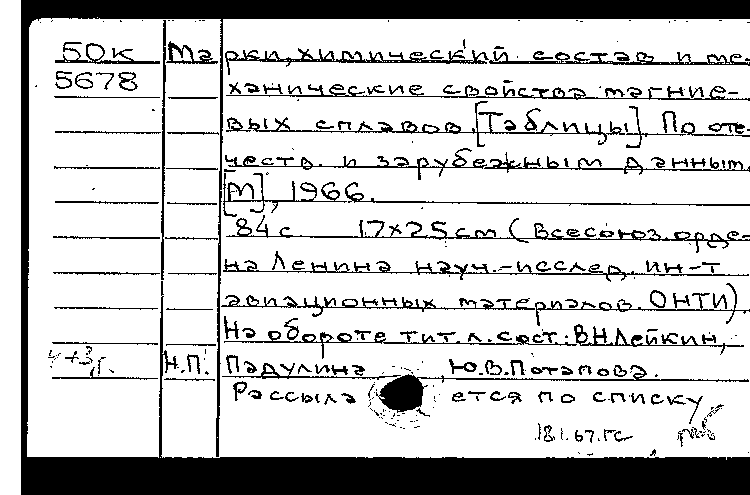 50к Марки, химический состав и ме-
5678 ханические свойства магние-
вых сплавов. [Таблицы]. По оте-
честв. и зарубежным данным.
[М], 1966.
84 с 17х25 см (Всесоюз. орде-
на Ленина науч.-исслед. ин-т
авиационных материалов. ОНТИ).
На обороте тит. л. сост.: В.Н.Лейкин,
Н.П. Падулина, Ю.В.Потапова.
Рассылается по списку
18.1.67.гс